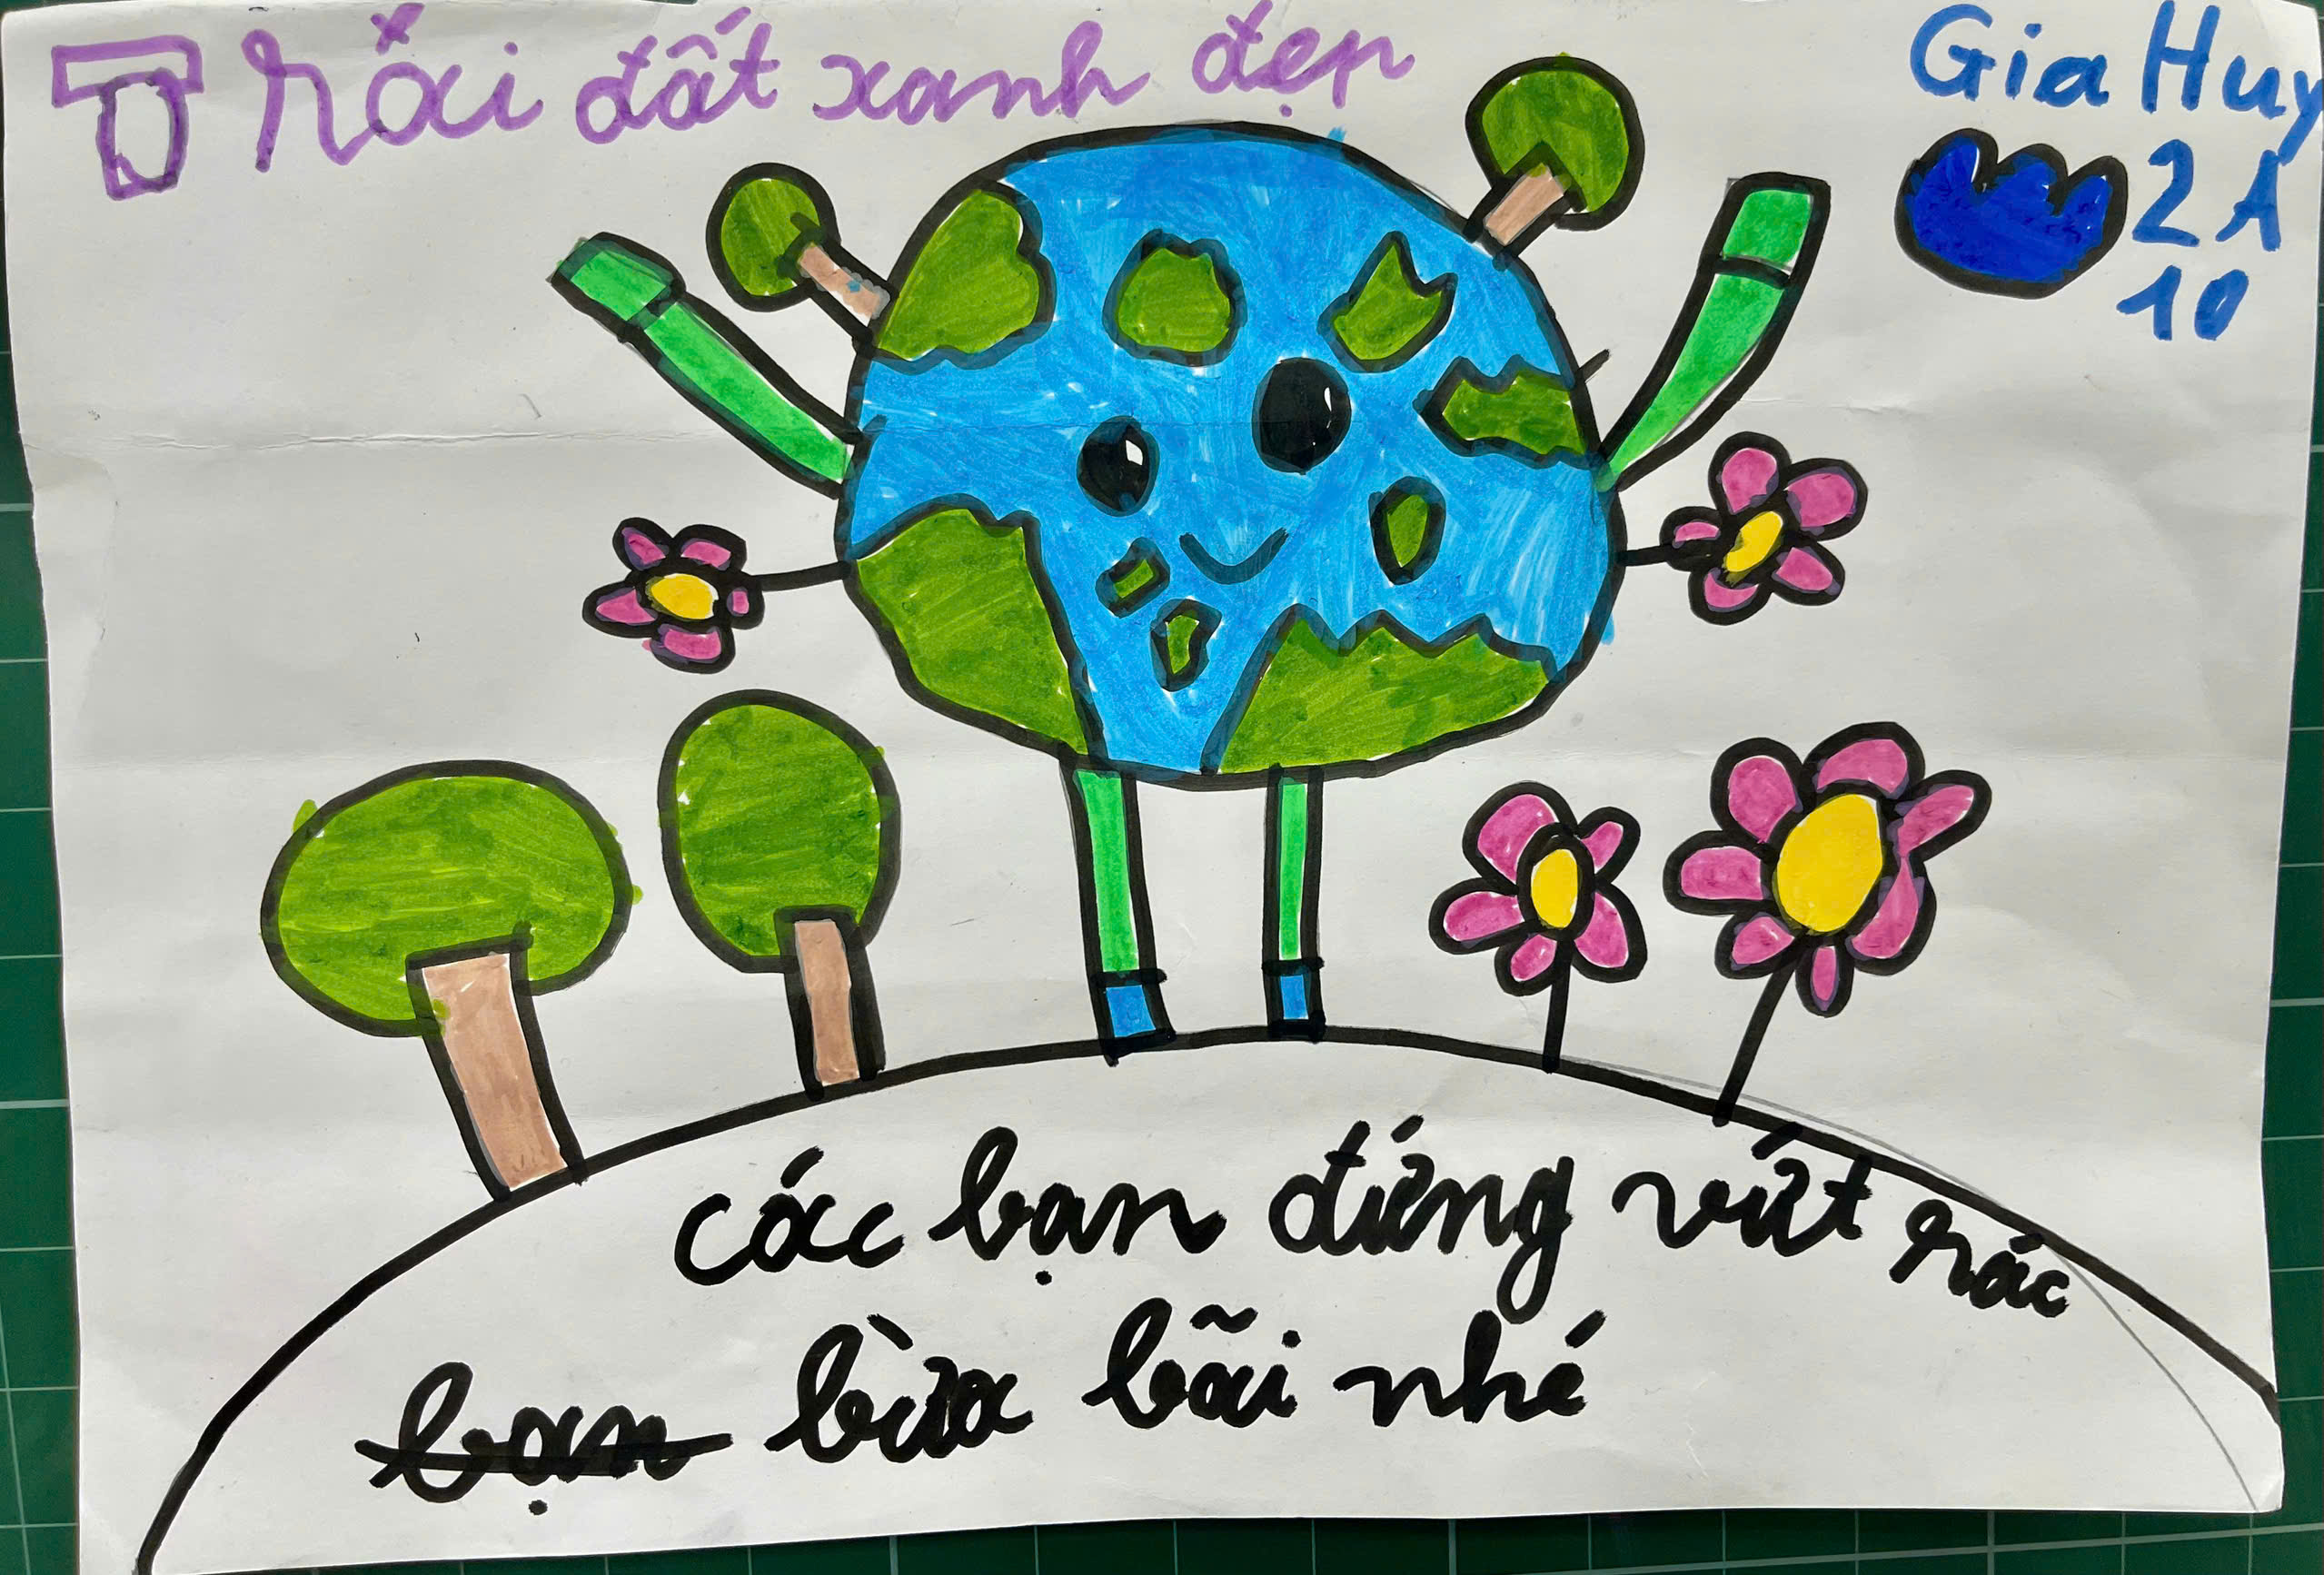 Trái đất xanh đẹp
Gia Huy
2A
10
các bạn đứng vứt rác
bạn bừa bãi nhé